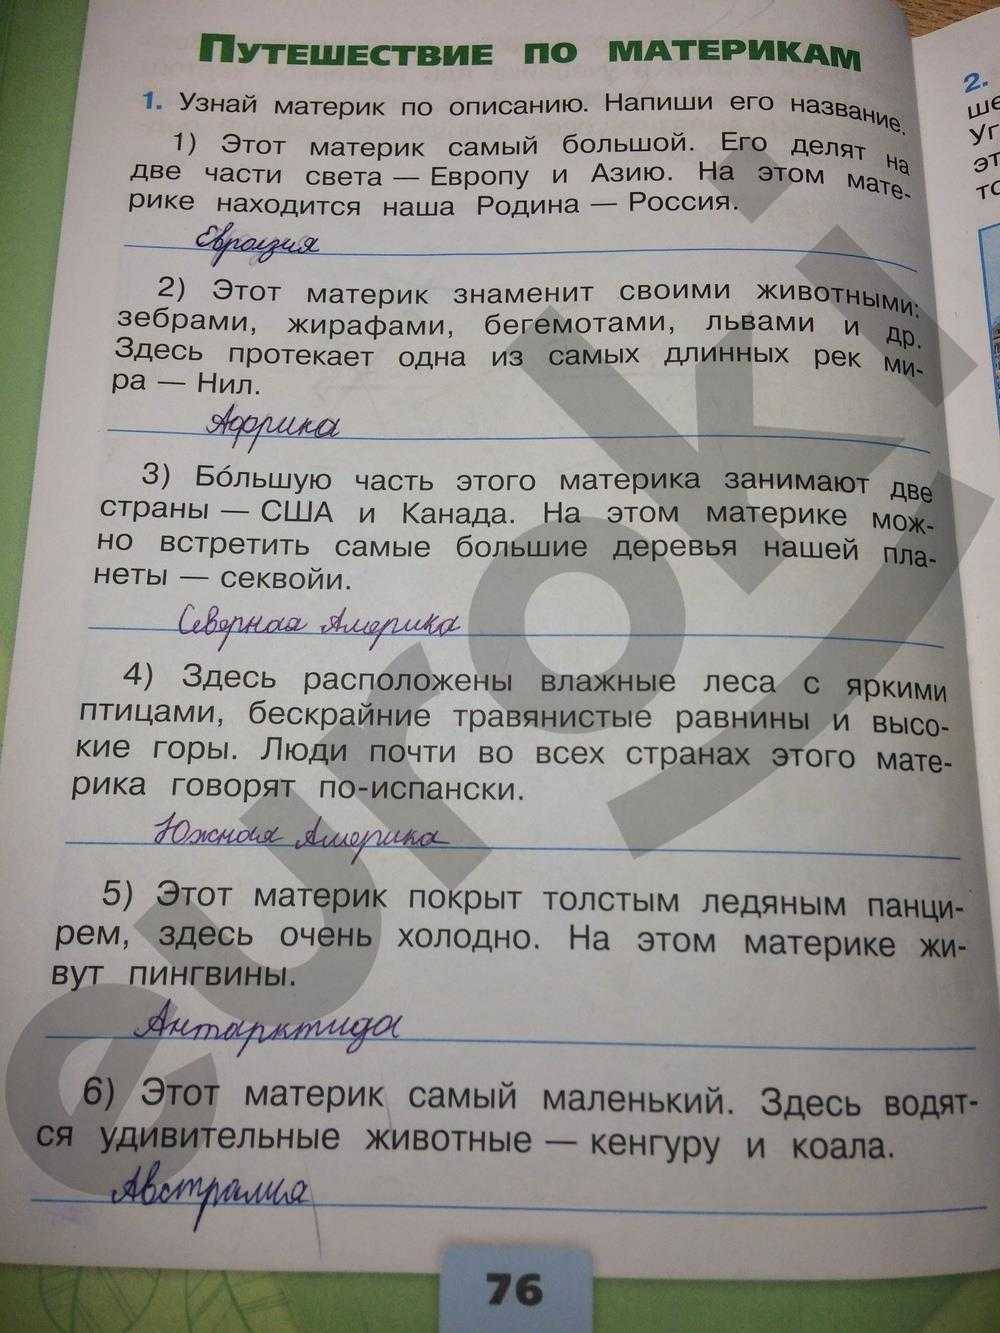 ПУТЕШЕСТВИЕ ПО МАТЕРИКАМ
1. Узнай материк по описанию. Напиши его название.
1) Этот материк самый большой. Его делят на
две части света — Европу и Азию. На этом мате-
рике находится наша Родина — Россия.
Евразия
2) Этот материк знаменит своими животными:
зебрами, жирафами, бегемотами, львами и др.
Здесь протекает одна из самых длинных рек ми-
ра — Нил.
Африка
3) Бо́льшую часть этого материка занимают две
страны — США и Канада. На этом материке мож-
но встретить самые большие деревья нашей пла-
неты — секвойи.
Северная Америка
4) Здесь расположены влажные леса с яркими
птицами, бескрайние травянистые равнины и высо-
кие горы. Люди почти во всех странах этого мате-
рика говорят по-испански.
Южная Америка
5) Этот материк покрыт толстым ледяным панци-
рем, здесь очень холодно. На этом материке жи-
вут пингвины.
Антарктида
6) Этот материк самый маленький. Здесь водят-
ся удивительные животные — кенгуру и коала.
Австралия
76
2.
ше
Уг
эт
то
euroki